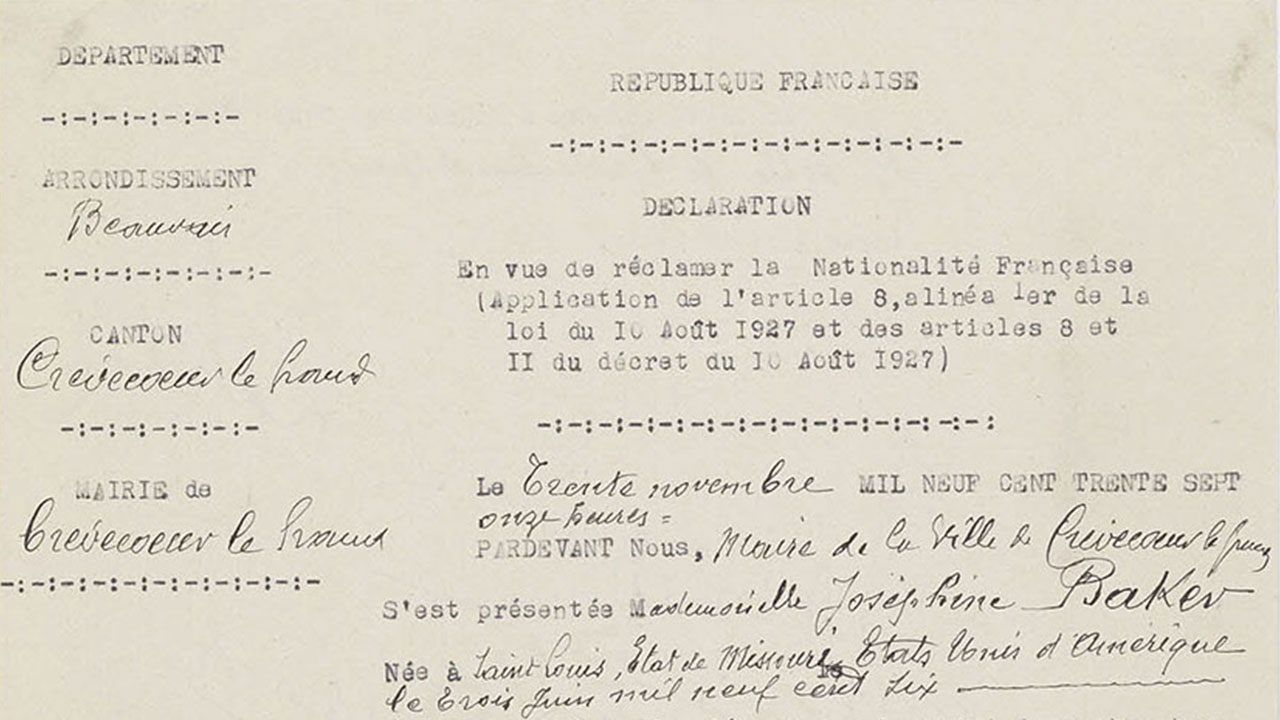 DEPARTEMENT
-:-:-:-:-:-:-
ARRONDISSEMENT
Beauvais
-:-:-:-:-:-:-:-
CANTON
Crèvecoeur le Grand
-:-:-:-:-:-:-
MAIRIE de
Crèvecoeur le Grand
-:-:-:-:-:-:-:-:-:-:-
REPUBLIQUE FRANCAISE
-:-:-:-:-:-:-:-:-:-:-:-:-:-
DECLARATION
En vue de réclamer la Nationalité Française
(Application de l'article 8,alinéa 1er de la
loi du IO Août I927 et des articles 8 et
II du décret du IO Août I927)
-:-:-:-:-:-:-:-:-:-:-:-:-:-:
Le Trente novembre MIL NEUF CENT TRENTE SEPT
onze heures =
PARDEVANT Nous, Maire de la Ville de Crèvecoeur le Grand
S'est présentée Mademoiselle Joséphine Baker
Née à Saint Louis, Etat de Missouri, Etats Unis d'Amérique
le trois Juin mil neuf cent six